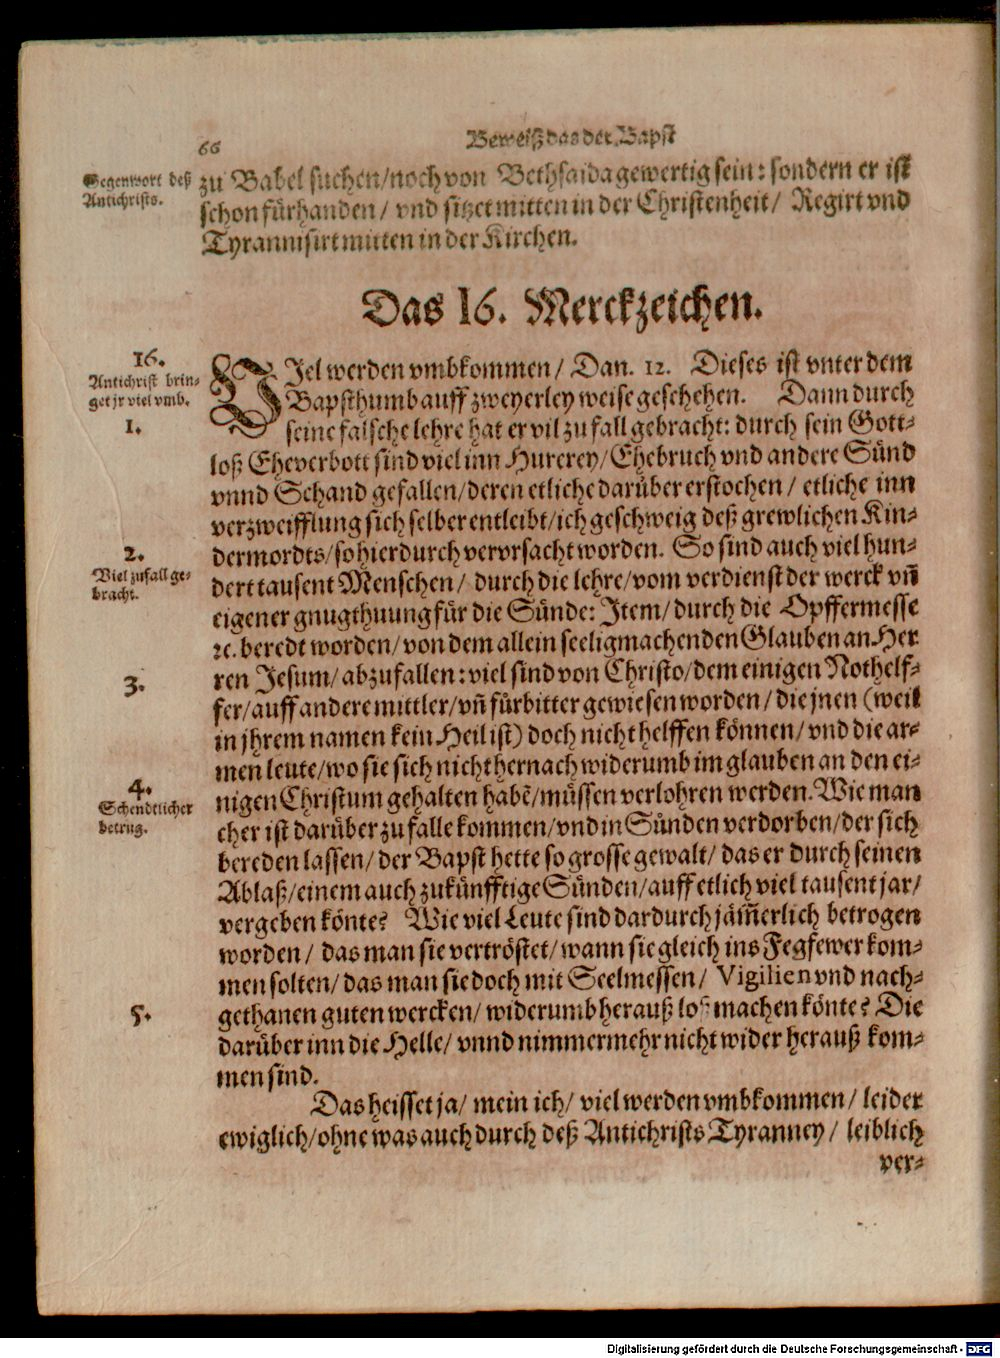 66
Beweiß das der Bapst
Gegenwort deß
Antichrists.
zu Babel suchen/noch von Bethsaida gewertig sein: sondern er ist
schon fürhanden/ vnd sitzet mitten in der Christenheit/ Regirt vnd
Tyrannisirt mitten in der Kirchen.
Das 16. Merckzeichen.
16.
Antichrist brin-
get jr viel vmb.
1.
VIel werden vmbkommen/ Dan. 12. Dieses ist vnter dem
Bapsthumb auff zweyerley weise geschehen. Dann durch
seine falsche lehre hat er vil zu fall gebracht: durch sein Gott-
loß Eheverbott sind viel inn Hurerey/Ehebruch vnd andere Sünd
vnnd Schand gefallen/deren etliche darüber erstochen/ etliche inn
verzweifflung sich selber entleibt/ich geschweig deß grewlichen Kin-
2.
Viel zufall ge-
bracht.
dermordts/so hierdurch vervrsacht worden. So sind auch viel hun-
dert tausent Menschen/ durch die lehre/vom verdienst der werck vñ
eigener gnugthuung für die Sünde: Item/durch die Opffermesse
ꝛc. beredt worden/von dem allein seeligmachenden Glauben an Her
3.
ren Jesum/abzufallen: viel sind von Christo/dem einigen Nothelf-
fer/auff andere mittler/vñ fürbitter gewiesen worden/die jnen (weil
in jhrem namen kein Heil ist) doch nicht helffen können/vnd die ar-
men leute/wo sie sich nicht hernach widerumb im glauben an den ei-
4.
Schendtlicher
betrug.
nigen Christum gehalten habẽ/müssen verlohren werden. Wie man
cher ist darüber zu falle kommen/vnd in Sünden verdorben/der sich
bereden lassen/der Bapst hette so grosse gewalt/das er durch seinen
Ablaß/einem auch zukünfftige Sünden/auff etlich viel tausent jar/
vergeben könte? Wie viel Leute sind dardurch jäm̃erlich betrogen
worden/ das man sie vertröstet/wann sie gleich ins Fegfewer kom-
men solten/das man sie doch mit Seelmessen/ Vigilien vnd nach-
5.
gethanen guten wercken/widerumb herauß loß machen könte? Die
darüber inn die Helle/ vnnd nimmermehr nicht wider herauß kom-
men sind.
Das heisset ja/ mein ich/ viel werden vmbkommen/ leider
ewiglich/ohne was auch durch deß Antichrists Tyranney/ leiblich
ver-
Digitalisierung gefördert durch die Deutsche Forschungsgemeinschaft - DFG